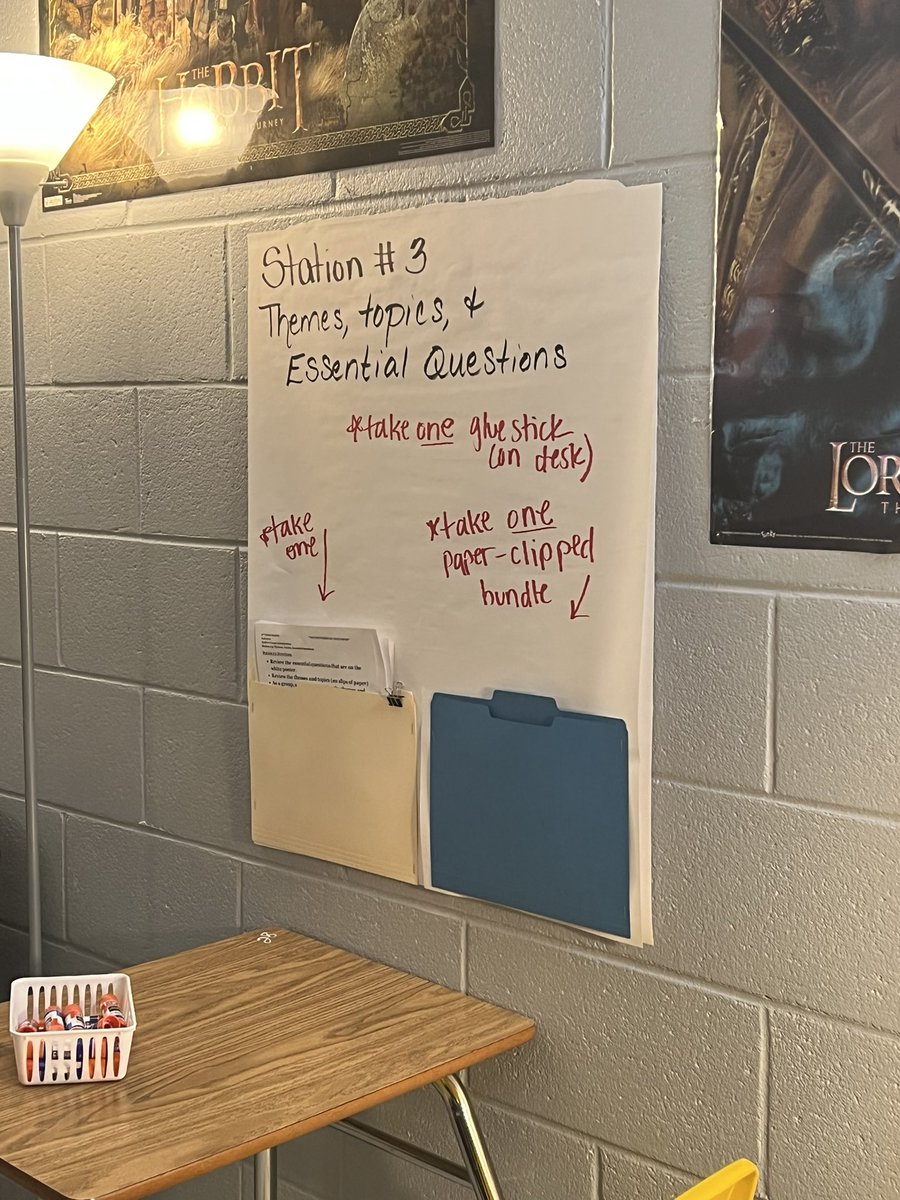 THE
HOBBIT
JOURNEY
Station #3
Themes, topics, &
Essential Questions
*take one glue stick
(on desk)
*take
one
*take one
paper-clipped
bundle
• Review the essential questions that are on the
white poster.
• Review the themes and topics (on slips of paper)
• As a group,
THE
LOR
TH